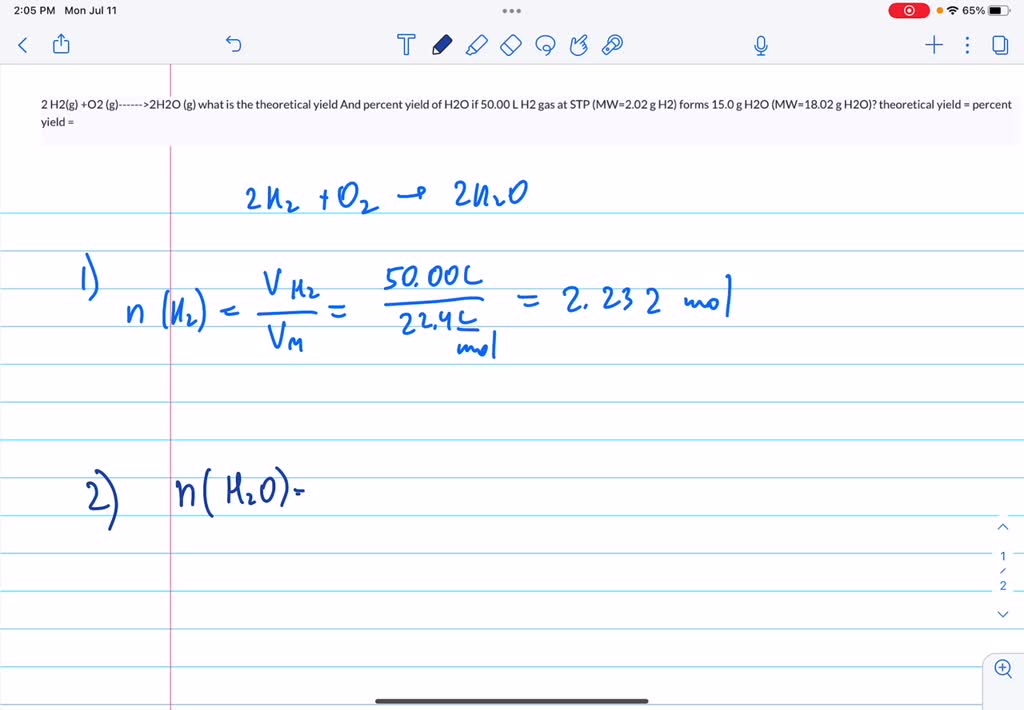 2:05 PM Mon Jul 11
65%
2 H2(g) +O2 (g)------>2H2O (g) what is the theoretical yield And percent yield of H2O if 50.00 L H2 gas at STP (MW=2.02 g H2) forms 15.0 g H2O (MW=18.02 g H2O)? theoretical yield = percent
yield =
2H₂ + O₂ → 2H₂O
1) n (H₂) = V H₂ / V M = 50.00L / 22.4 L/mol = 2.232 mol
2) n(H₂O)=
1
/
2